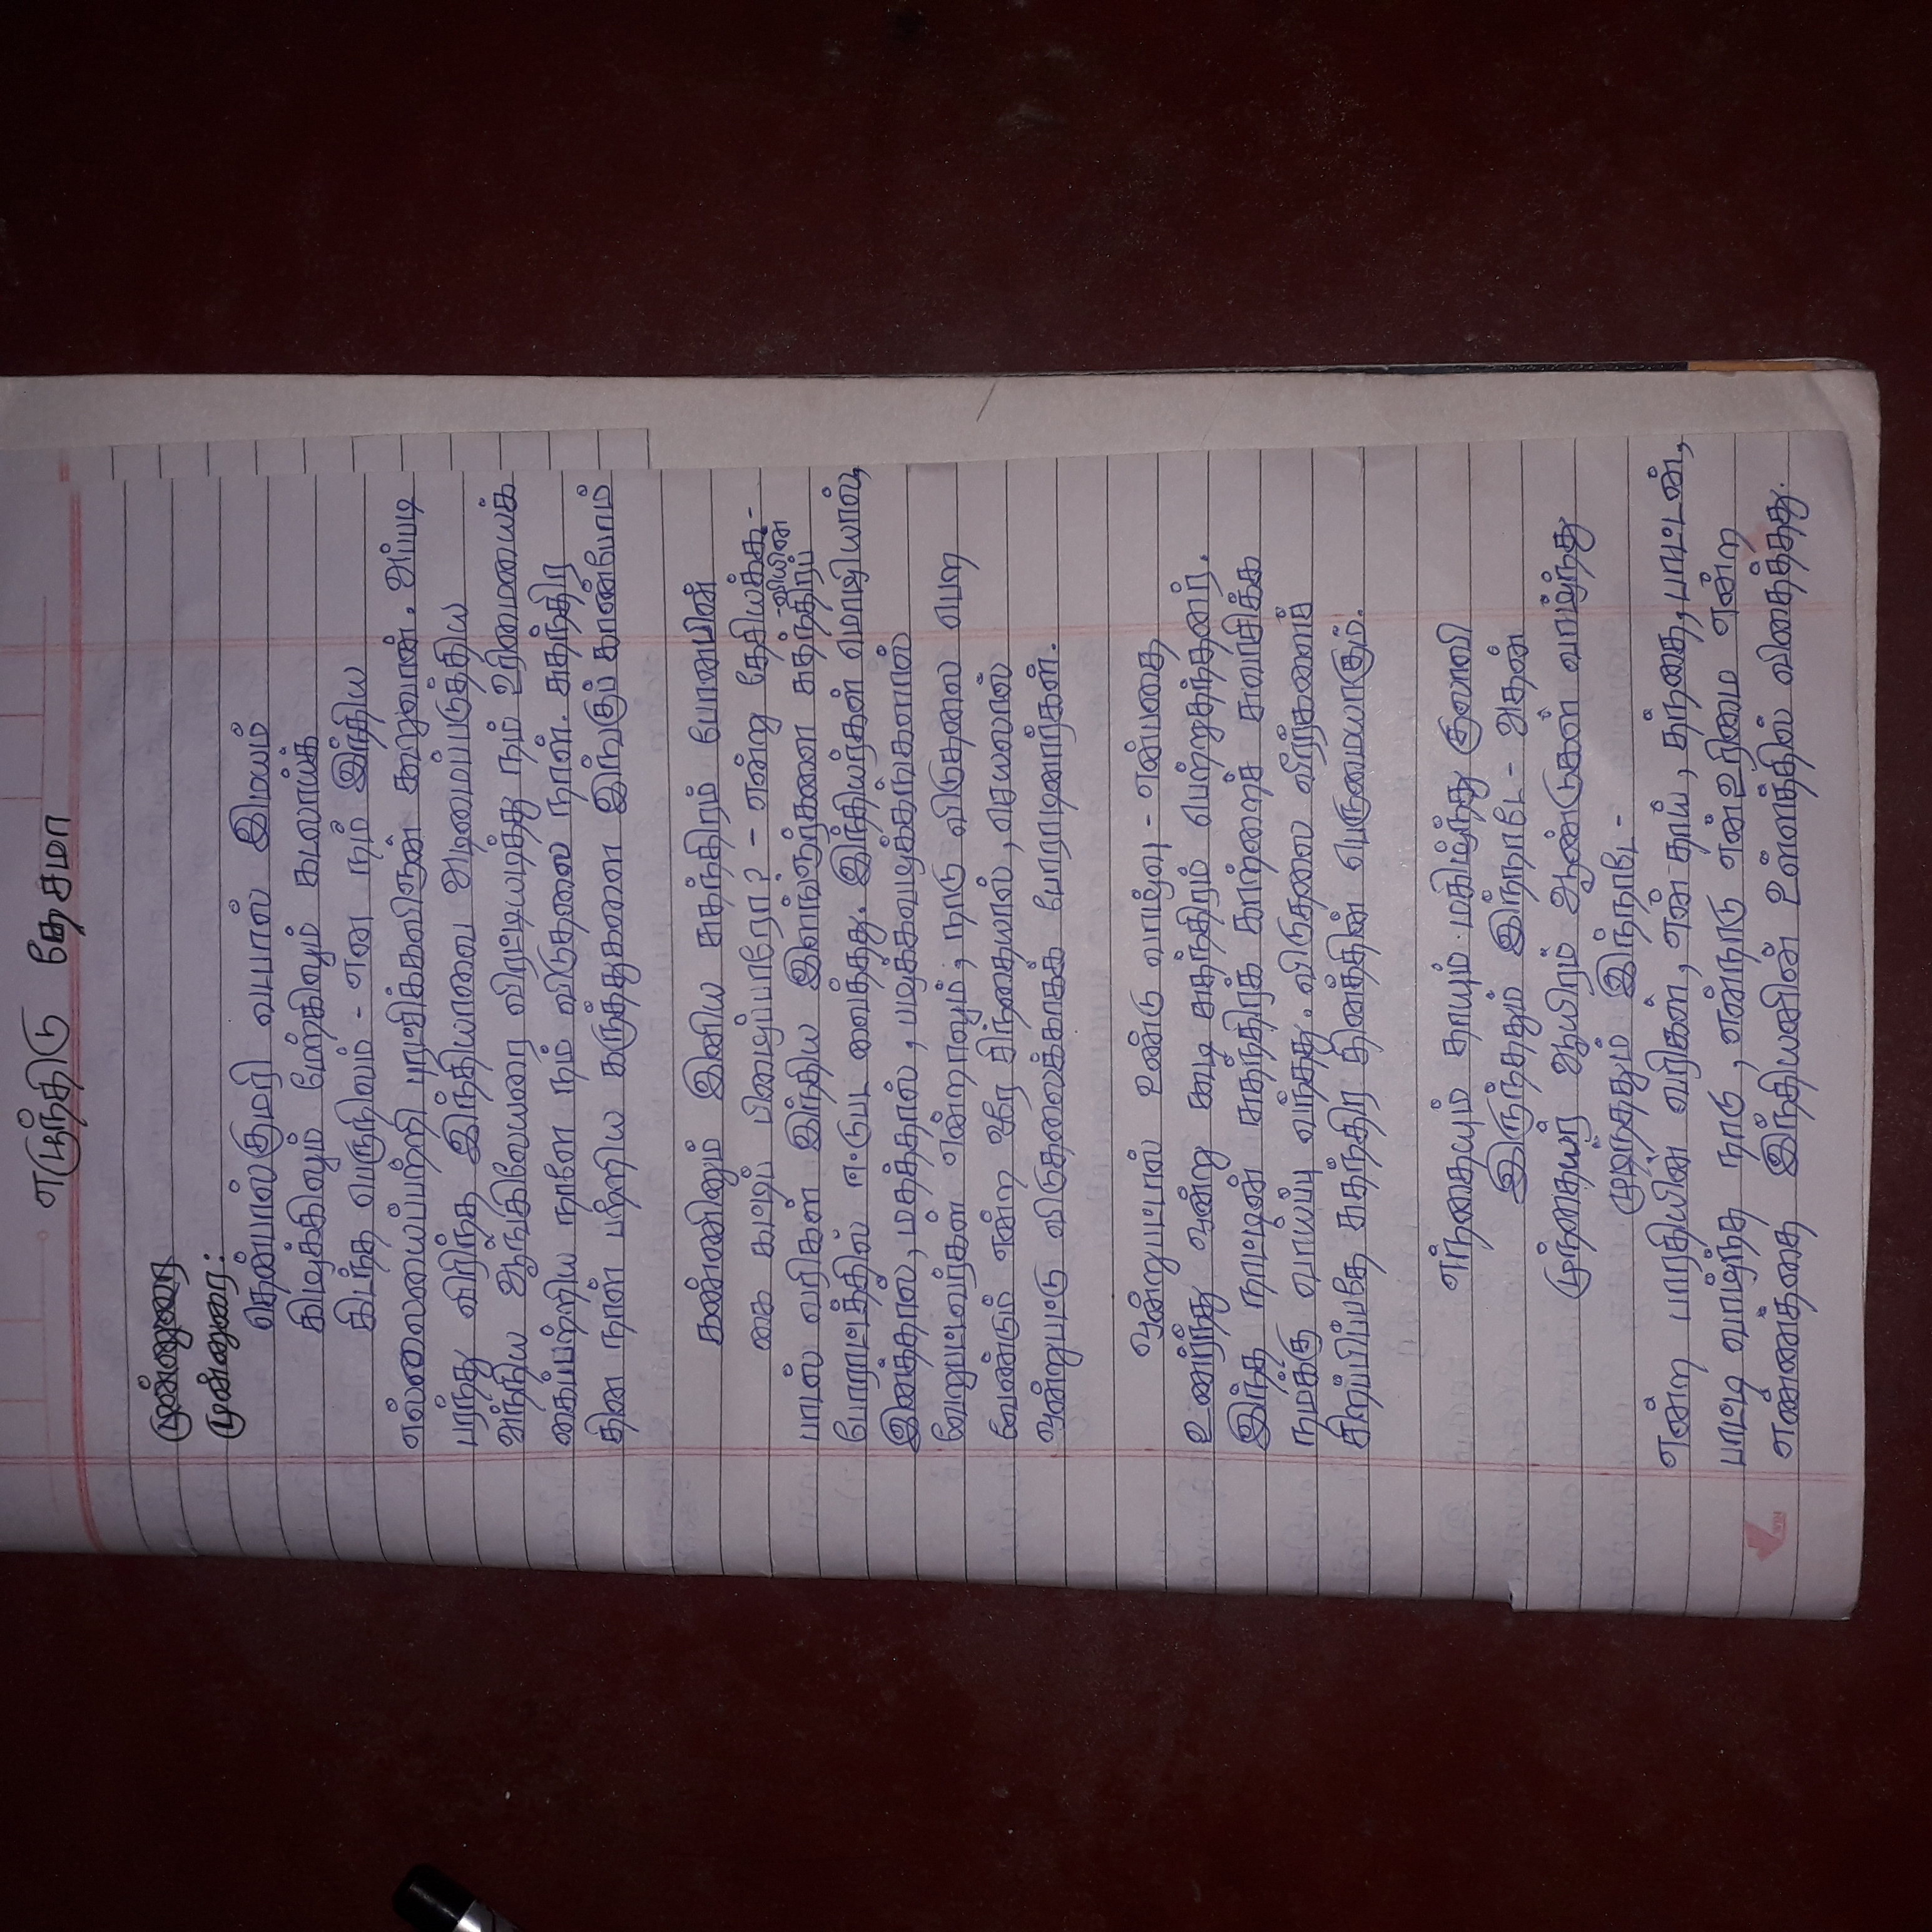 எழுந்திடு தேசமா
முன்னுரை
முன்னுரை:
தென்பால்குமரி வடபால் இமயம்
கிழக்கிலும் மேற்கிலும் கடலாய்க்
கிடந்த பெருநிலம் - என நம் இந்திய
எல்லையைப்பற்றி புரட்சிக்கவிஞன் கூறுவான். அப்படி
பரந்து விரிந்த இந்தியாவை அடிமைப்படுத்திய
அந்நிய ஆங்கிலேயரை விரட்டியடித்து நம் உரிமையைக்
கைப்பற்றிய நாளே நம் விடுதலை நாள். சுதந்திர
தின நாள் பற்றிய கருத்துகளை இங்குப் காண்போம்
கண்ணினும் இனிய சுதந்திரம் போனபின்
கை கட்டிப் பிழைப்பாரோ? - என்று தேசியக்க-
-வியின்
பாடல் வரிகள் இந்திய இளங்ஞர்களை சுதந்திரப்
போராட்டத்தில் ஈடுபட வைத்தது. இந்தியர்கள் மொழியால்,
இனத்தால், மதத்தால், பழக்கவழக்கங்களால்
வேறுபட்டவர்கள் என்றாலும், நாடு விடுதலை பெற
வேண்டும் என்ற ஒரே சிந்தையால், செயலால்
ஒன்றுபட்டு விடுதலைக்காகக் போராடினார்கள்.
ஒன்றுபட்டால் உண்டு வாழ்வு - என்பதை
உணர்ந்து ஒன்று கூடி சுதந்திரம் பெற்றுதந்தனர்.
இந்த நாட்டின் சுதந்திரக் காற்றைச் சுவாசிக்க
நமக்கு வாய்ப்பு வந்தது. விடுதலை வீரர்களைச்
சிறப்பிப்பதே சுதந்திர தினத்தின் பெருமையாகும்.
எந்தையும் தாயும் மகிழ்ந்து குலாவி
இருந்ததும் இந்நாடே - அதன்
முந்தையர் ஆயிரம் ஆண்டுகள் வாழ்ந்து
முடிந்ததும் இந்நாடே -
என்ற பாரதியின் வரிகள், என் தாய், தந்தை, பாட்டன்,
பாட்டி வாழ்ந்த நாடு, என்நாடு என்உரிமை என்ற
எண்ணத்தை இந்தியனின் உள்ளத்தில் விதைத்தது.
WIN